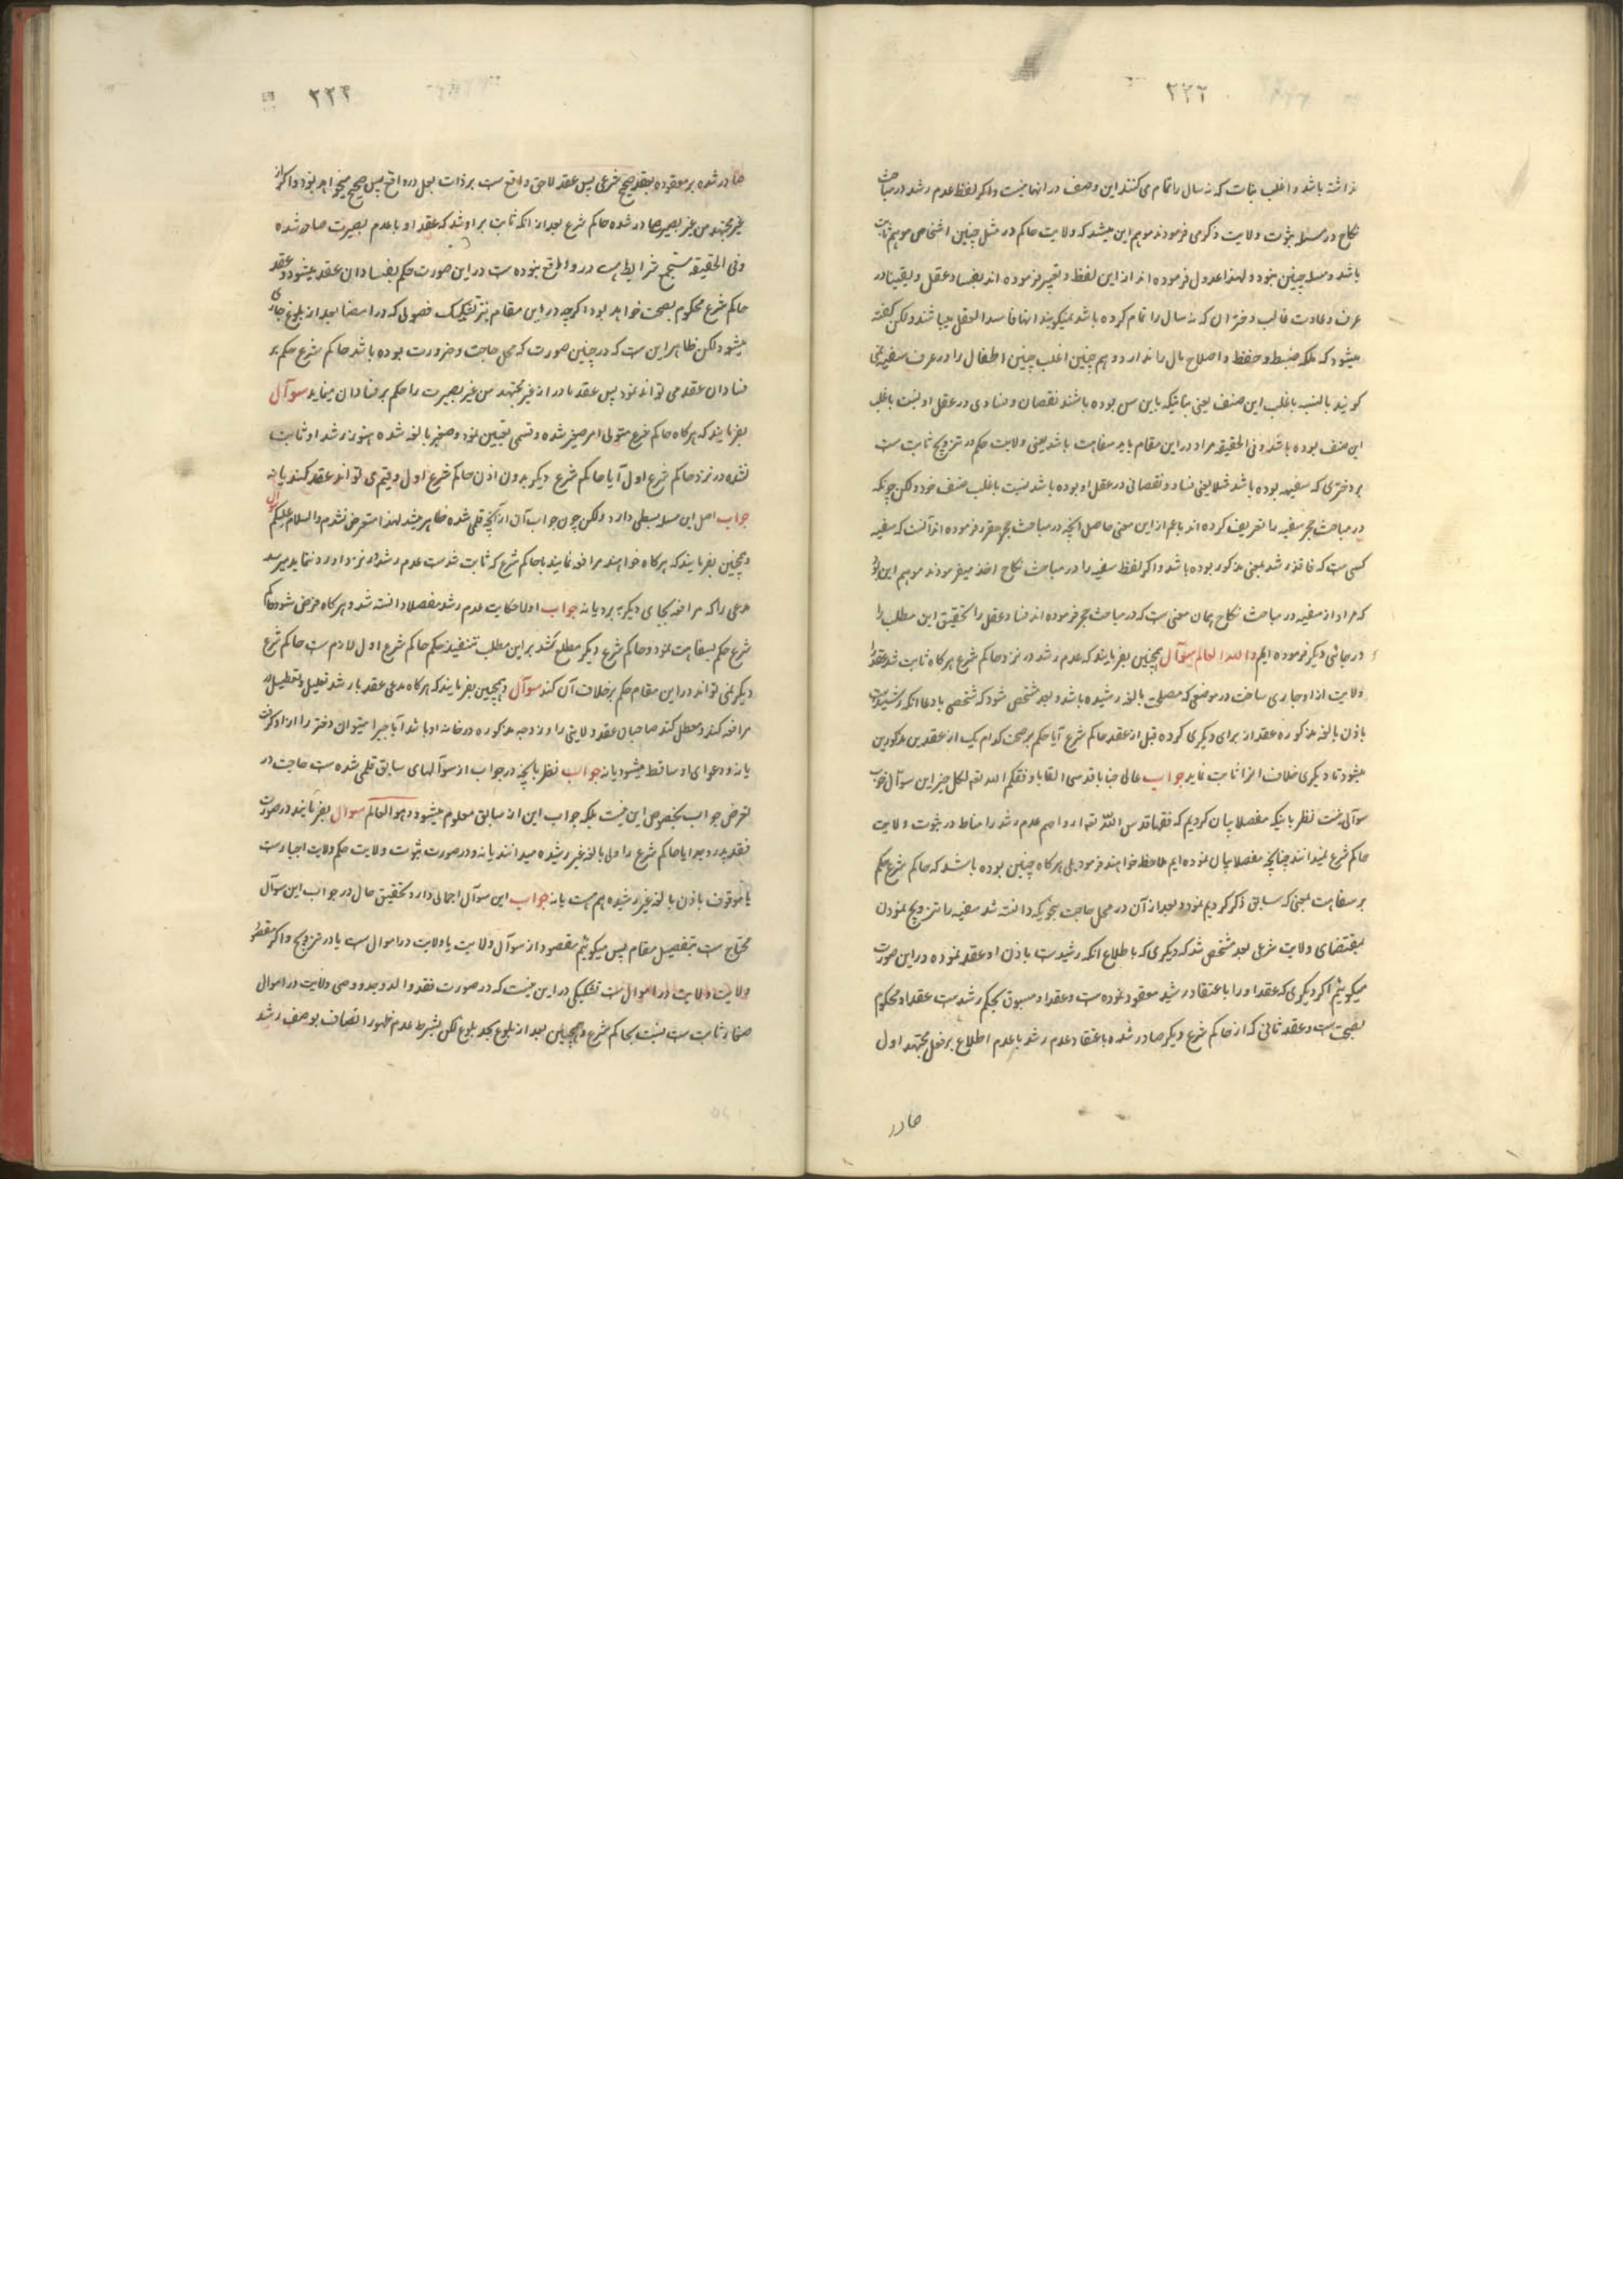 ۲۲۲
نداشته باشد و اغلب بنات که نه سال را تمام می کنند این وصف در انها نیست و اکر لفظ عدم رشد در مباحث
نکاح در مسئله ثبوت ولایت ذکر می فرمودند موهم این میشد که ولایت حاکم در مثل چنین اشخاص موهم ثابت
باشد و مسئله چنین نبود و لهذا عدول فرموده اند از این لفظ و تعبیر فرموده اند بفساد عقل و یقینا در
عرف و عادت غالب دختران که نه سال را تمام کرده باشد نمیکویند انها فاسد العقل میباشند و لکن کفته
میشود که ملکه ضبط و حفظ و اصلاح مال را ندارد و هم چنین اغلب چنین اطفال را در عرف سفیه نمی
کویند بالنسبه باغلب این صنف یعنی بناتیکه باین سن بوده باشند نقصان و فسادی در عقل او نسبت باغلب
این صنف بوده باشد و فی الحقیقه مراد در این مقام باید سفاهت باشد یعنی ولایت حکم در تزویج ثابت ست
بر دختری که سفیهه بوده باشد مثلا یعنی فساد و نقصانی در عقل او بوده باشد نسبت باغلب صنف خود و لکن چونکه
در مباحث حجر سفیه را تعریف کرده اند باعم از این معنی حاصل انچه در مباحث حجر مقرر فرموده اند آنست که سفیه
کسی ست که فاقد رشد بمعنی مذکور بوده باشد و اکر لفظ سفیه را در مباحث نکاح اخذ میفرمودند موهم این بود
که مراد از سفیه در مباحث نکاح همان معنی ست که در مباحث حجر فرموده اند فساد عقل را تحقیق این مطلب را
در جائی دیکر فرموده ایم والله العالم سوآل همچنین بفرمایند که عدم رشد در نزد حاکم شرع هرکاه ثابت شد عقد
ولایت از او جاری ساخت در موضعی که مصلحت بالغه رشیده باشد و بعد مشخص شود که شخصی بادعا انکه رشیده ست
باذن بالغه مذکوره عقد از برای دیکری کرده قبل از عقد حاکم شرع آیا حکم بر صحت کدام یک از عقدین مذکورین
میشود تا دیکری خلاف انرا ثابت نماید جواب عالی جنابا قدسی القابا وفقکم الله تعه لکل خیر این سوآل خوب
سوآلی نیست نظر باینکه مفصلا بیان کردیم که فقها قدس الله تعه ارواحهم عدم رشد را مناط در ثبوت ولایت
حاکم شرع نمیدانند چنانچه مفصلا بیان نموده ایم ملاحظه خواهند فرمود بلی هرکاه چنین بوده باشد که حاکم شرع حکم
بر سفاهت بمعنی که سابق ذکر کردیم نمود و بعد از آن در محل حاجت بنحویکه دانسته شد سفیه را تزویج نمودن
بمقتضای ولایت شرعی بعد مشخص شد که دیکری که باطلاع انکه رشیده ست باذن او عقد نموده در این صورت
میکوئیم اکر دیکری که عقد او را باعتقاد رشید معقود نموده ست و عقد او مسبوق بحکم رشد ست عقد او محکوم
بصحت ست و عقد ثانی که از حاکم شرع دیکر صادر شده باعتقاد عدم رشد با عدم اطلاع بر فعل مجتهد اول
صادر
۲۲۳
صادر شده بر معقوده بعقد صحیح شرعی پس عقد لاحق واقع ست بر ذات بعل در واقع پس صحیح نخواهد بود و اکر از
غیر مجتهد من غیر بصیرت صادر شده حاکم شرع بعد از انکه ثابت بر او شد که عقد او با عدم بصیرت صادر شده
و فی الحقیقه مستجمع شرایط هم در واقع نبوده ست در این صورت حکم بفساد ان عقد میشود و عقد
حاکم شرع محکوم بصحت خواهد بود اکرچه در این مقام نیز تشکیک فضولی که در امضا بعد از بلوغ جاری
میشود لکن ظاهر این ست که در چنین صورت که محل حاجت و ضرورت بوده باشد حاکم شرع حکم بر
فساد ان عقد می تواند نمود پس عقد صادر از غیر مجتهد من غیر بصیرت را حکم بر فساد ان مینماید سوآل
بفرمایند که هرکاه حاکم شرع متولی امر صغیر شده و قسمی تعیین نمود و صغیر بالغه شده هنوز رشد او ثابت
نشده در نزد حاکم شرع اول آیا حاکم شرع دیکر بدون اذن حاکم شرع اول و قیم می تواند عقد کند یا نه
جواب اصل این مسئله بسطی دارد ولکن چون جواب آن از آنچه قلمی شده ظاهر میشد لهذا متعرض نشدم والسلام علیکم سوآل
و همچنین بفرمایند که هرکاه خواهند مرافعه نمایند با حاکم شرع که ثابت شدست عدم رشد در نزد او رد نتمایند میرسد
مدعی را که مرافعه بجای دیکر به برد یا نه جواب اولا حکایت عدم رشد مفصلا دانسته شد و هرکاه فرض شود حاکم
شرع حکم بسفاهت نمود و حاکم شرع دیکر مطلع کشد بر این مطلب تنفیذ حکم حاکم شرع اول لازم ست حاکم شرع
دیکر نمی تواند در این مقام حکم بر خلاف آن کند سوآل و همچنین بفرمایند که هرکاه مدعی عقد با رشد تعلیل و تعطیل در
مرافعه کند و معطل کند صاحبان عقد ولایتی را و زوجه مذکوره در خانه او باشد آیا جبرا میتوان دختر را از او کرفت
یا نه و دعوای او ساقط میشود یا نه جواب نظر بانچه در جواب از سوآلهای سابق قلمی شده ست حاجت در
تعرض جواب بخصوص این نیست بلکه جواب این از سابق معلوم میشود و هو العالم سوال بفرمایند در صورت
فقد پدر و جد ایا حاکم شرع را ولی بالغه غیر رشیده میدانند یا نه و در صورت ثبوت ولایت حکم ولایت اجبار ست
یا موقوف باذن بالغه غیر رشیده هم هست یا نه جواب این سوآل اجمالی دارد تحقیق حال در جواب این سوآل
محتاج ست بتفصیل مقام پس میکوئیم مقصود از سوآل ولایت یا ولایت در اموال ست یا در تزویج و اکر مقصود
ولایت ولایت در اموال ست تشکیکی در این نیست که در صورت فقد والد و جد و وصی ولایت در اموال
صغار ثابت ست نسبت بحاکم شرع و همچنین بعد از بلوغ بحد بلوغ لکن بشرط عدم ظهور اتصاف بوصف رشد